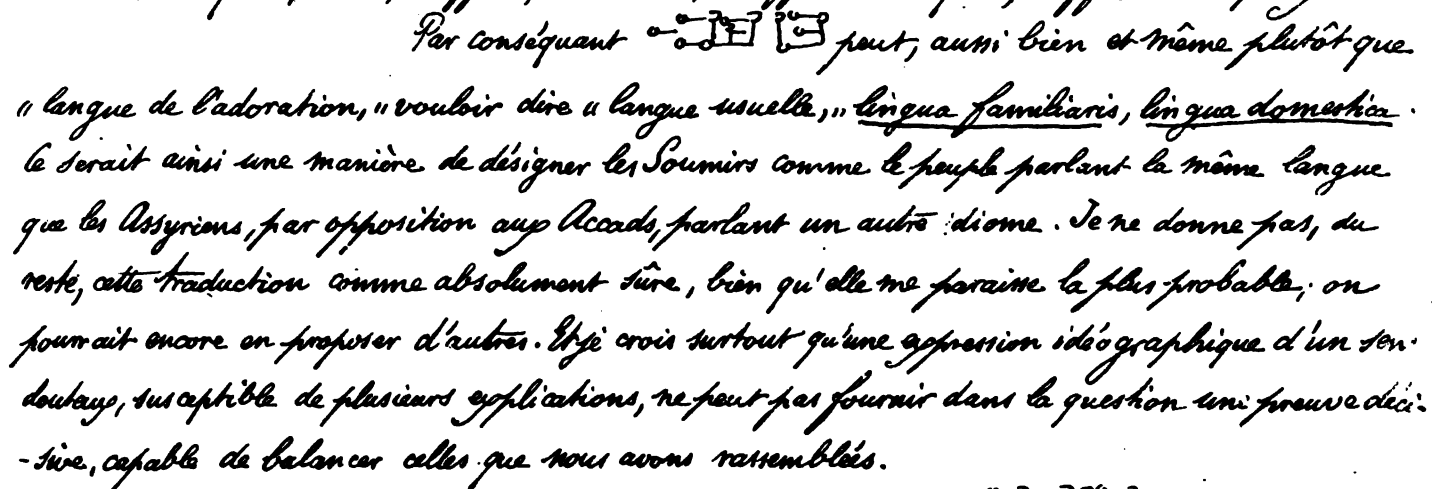 Par conséquant peut, aussi bien et même plutôt que
„langue de l'adoration,„ vouloir dire „langue usuelle,„ lingua familiaris, lingua domestica.
Ce serait ainsi une manière de désigner les Soumirs comme le peuple parlant la même langue
que les Assyriens, par opposition aux Accads, parlant un autre idiome. Je ne donne pas, du
reste, cette traduction comme absolument sûre, bien qu'elle me paraisse la plus probable; on
pourrait encore en proposer d'autres. Et je crois surtout qu'une expression idéographique d'un sen-
douteux, susceptible de plusieurs explications, ne peut pas fournir dans la question une preuve déci-
-sive, capable de balancer celles que nous avons rassemblées.